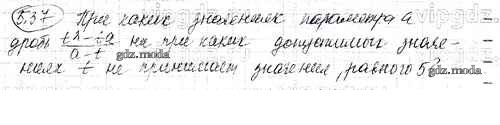 5.37 При каких значениях параметра a
дробь на при каких допустимых значе-
ниях t не принимает значения, равного 5?
vipgdz
gdz.moda
gdz.moda